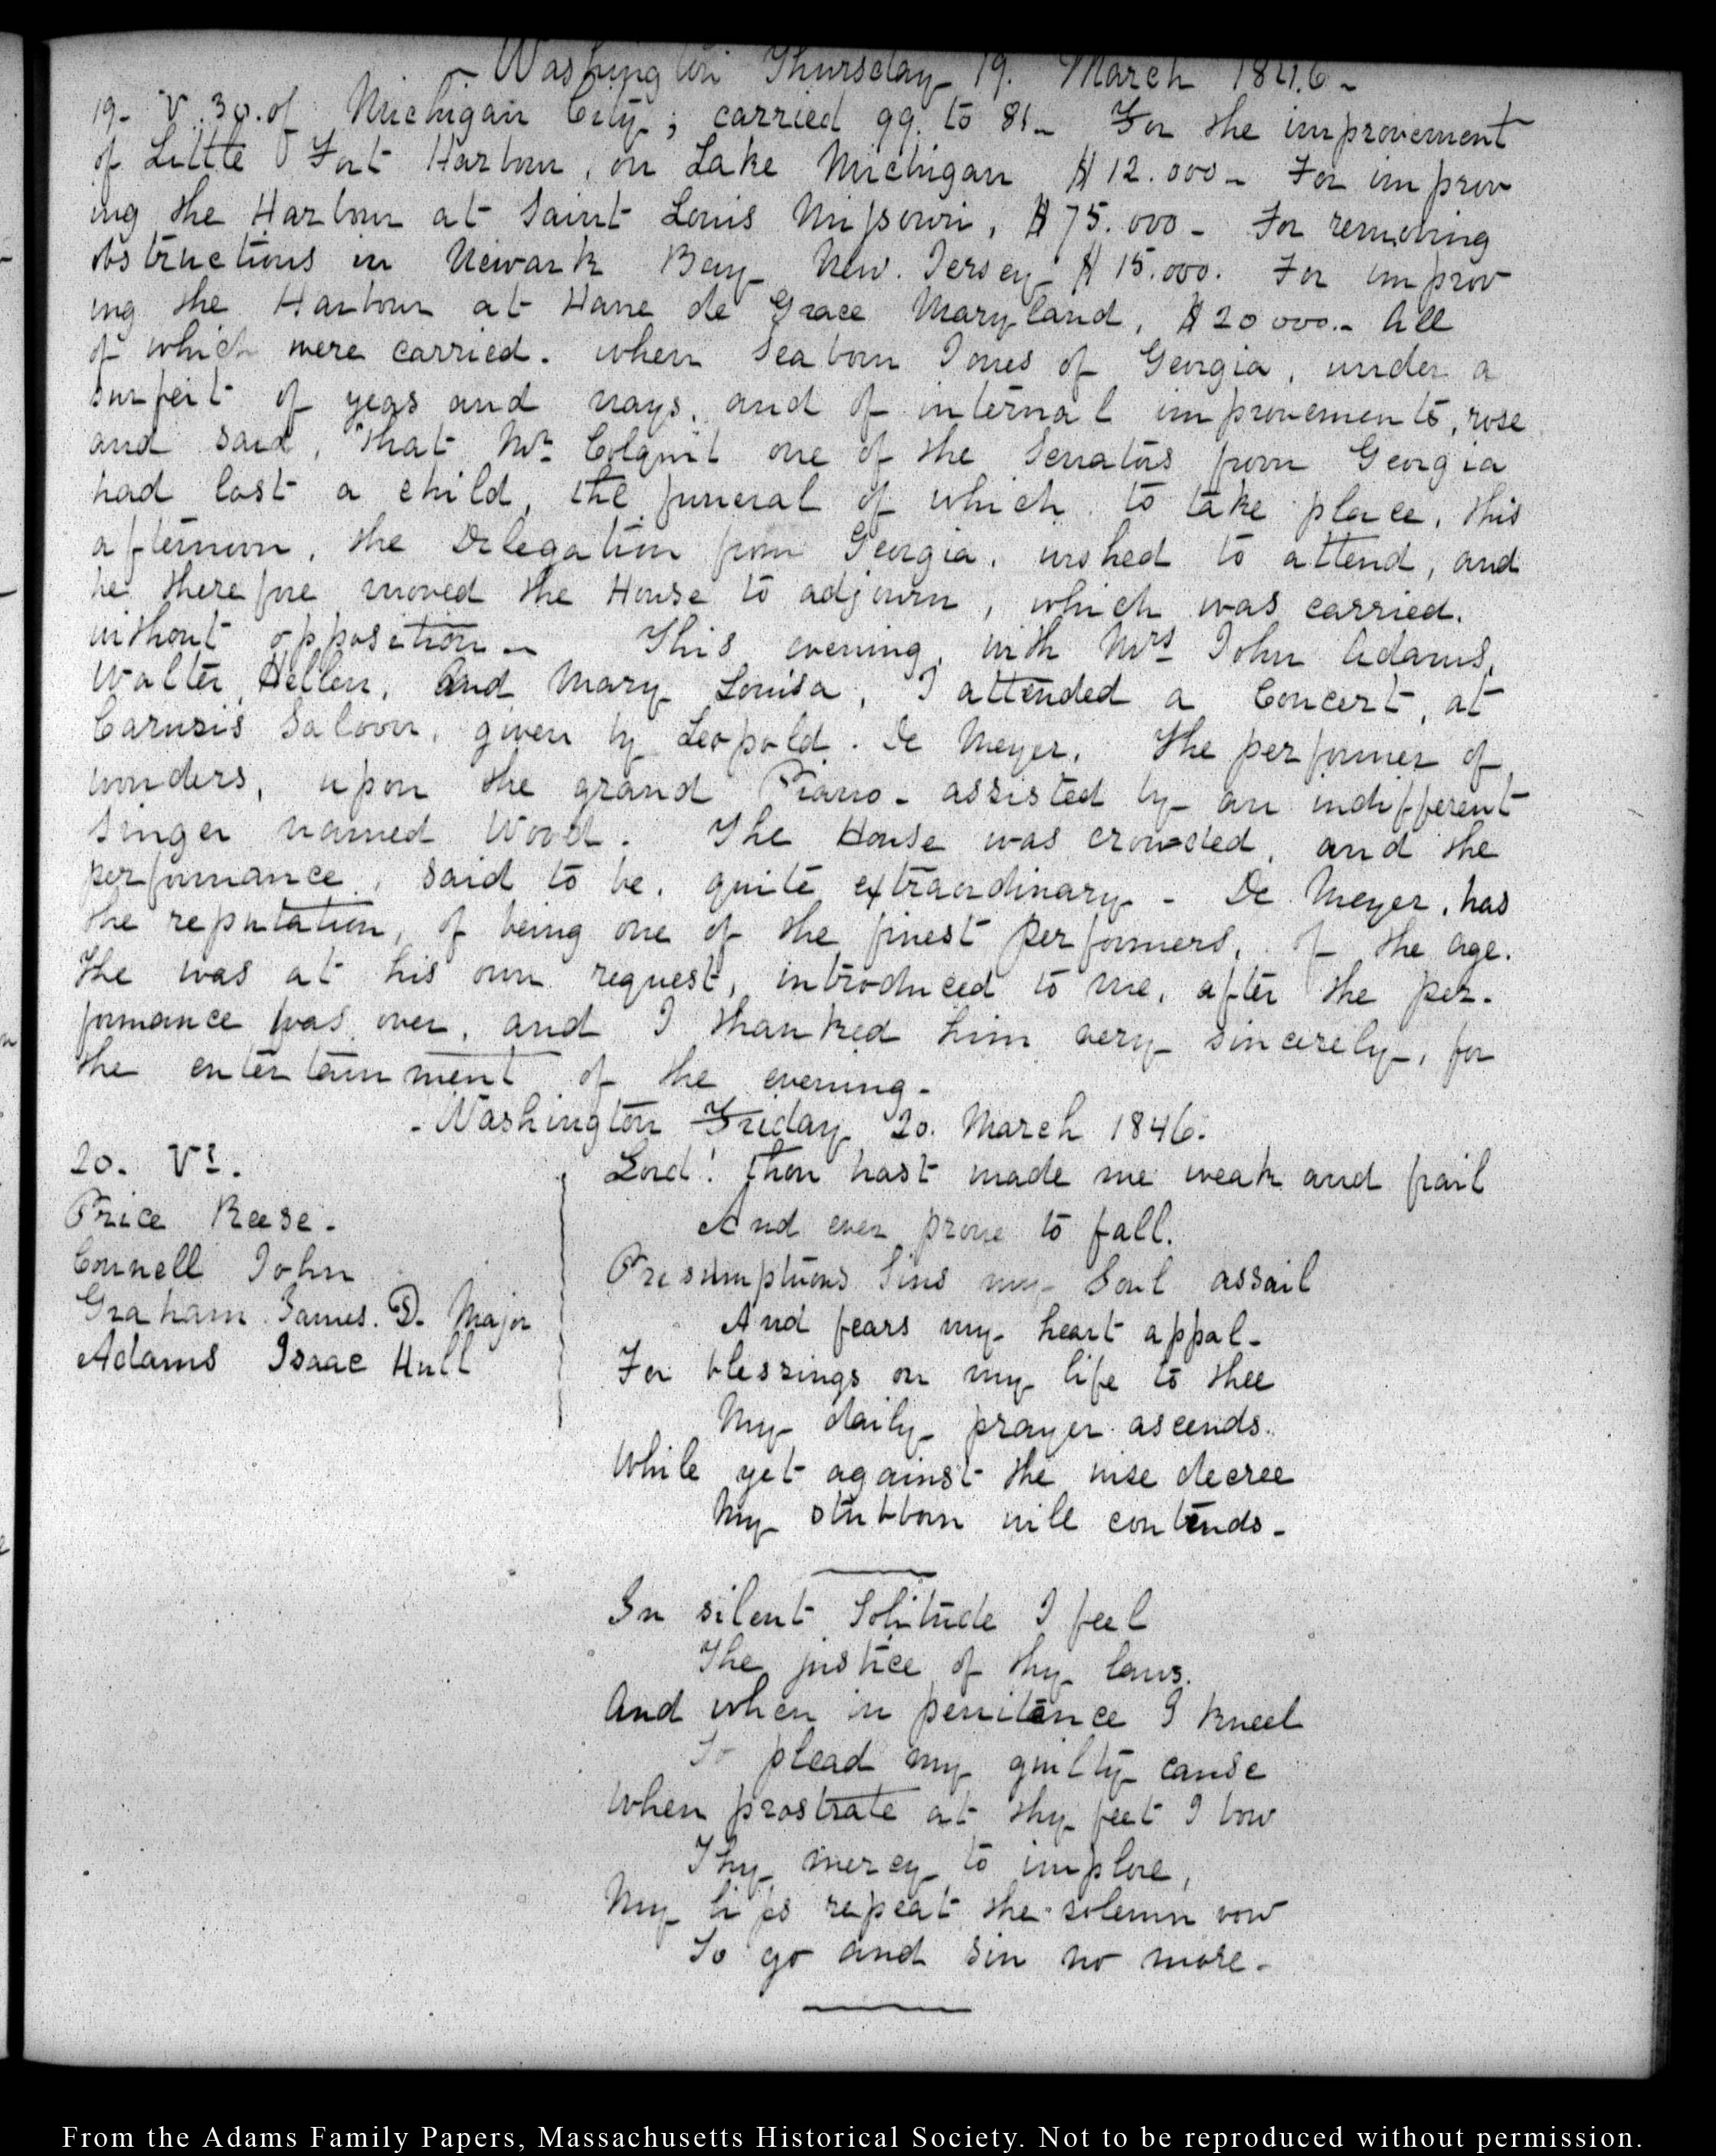 - Washington Thursday 19. March 1846 -
19- V. 30. of Michigan City; carried 99. to 81- For the improvement
of Little Fort Harbour, on Lake Michigan $12.000- For improv
ing the Harbour at Saint Louis Missouri, $75.000- For removing
obstructions in Newark Bay New. Jersey $15.000. For improv
ing the Harbour at Havre de Grace Maryland, $20000.- All
of which were carried. when Seaborn Jones of Georgia, under a
surfeit of yeas and nays, and of internal improvements, rose
and said, that Mr. Colquit one of the Senators from Georgia
had lost a child, the funeral of which to take place, this
afternoon, the Delegation from Georgia, wished to attend, and
he therefore moved the House to adjourn, which was carried.
without opposition- This evening, with Mrs John Adams,
Walter Hellen, and Mary Louisa, I attended a Concert, at
Carusis Saloon, given by Leopold. De Meyer, The performer of
wonders, upon the grand Piano- assisted by an indifferent
singer named Wood. The House was crowded, and the
performance, said to be, quite extraordinary- De Meyer, has
the reputation, of being one of the finest performers, of the age.
He was at his own request, introduced to me, after the per-
formance was over, and I thanked him very sincerely, for
the entertainment of the evening-
- Washington Friday 20. March 1846.
20. VI.
Price Reese.
Connell John
Graham James. D. Major
Adams Isaac Hull
Lord! thou hast made me weak and frail
And ever prone to fall.
Presumptuous Sins my Soul assail
And fears my heart appal-
For blessings on my life to thee
My daily prayer ascends.
While yet against the wise decree
My stubborn will contends-
In silent Solitude I feel
The justice of thy laws.
And when in penitence I kneel
To plead my guilty cause
When prostrate at thy feet I bow
Thy mercy to implore,
My lips repeat the solemn vow
To go and sin no more-
From the Adams Family Papers, Massachusetts Historical Society. Not to be reproduced without permission.